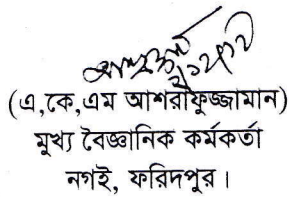 (এ,কে,এম আশরাফুজ্জামান)
মুখ্য বৈজ্ঞানিক কর্মকর্তা
নগই, ফরিদপুর।